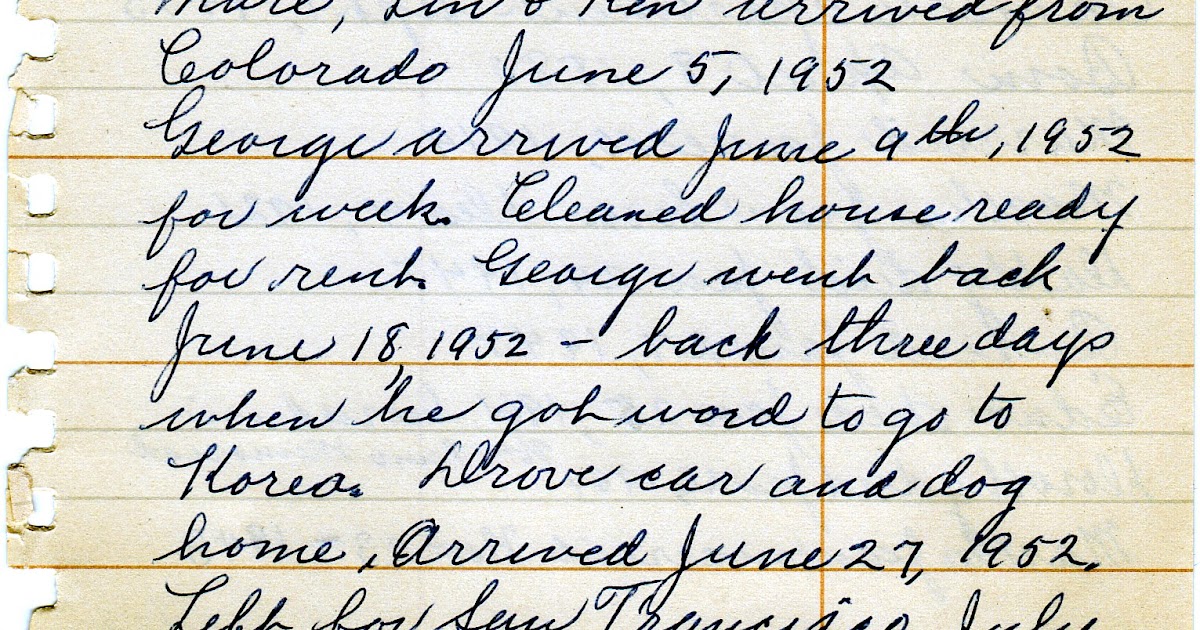 Lin & Ken arrived from
Colorado June 5, 1952
George arrived June 9th, 1952
for week. Cleaned house ready
for rent. George went back
June 18, 1952 – back three days
when he got word to go to
Korea. Drove car and dog
home, Arrived June 27, 1952.
Left for San Francisco July